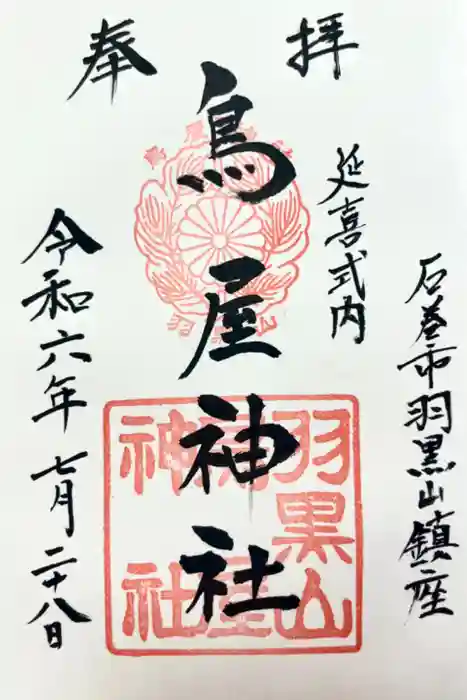 奉拝
石巻市羽黒山鎮座
延喜式内
鳥屋神社
羽黒山
鳥屋
神社
令和六年七月二十八日